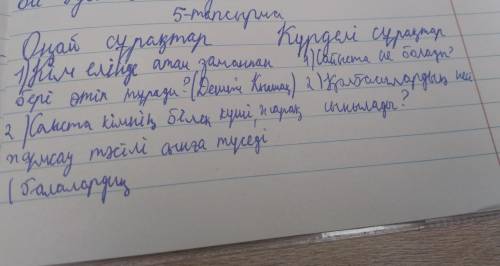 5-тапсырма
Оңай сұрақтар Күрделі сұрақтар
1) Кім елінде атам заманнан 1) Сайыста не болады?
бері өтіп тұрады? (Дешті Қыпшақ) 2) Қолбасылардың
2) Сайыста кімнің білек күші, жарақ сыналады?
жұмсау тәсілі сынға түседі
(балалардың